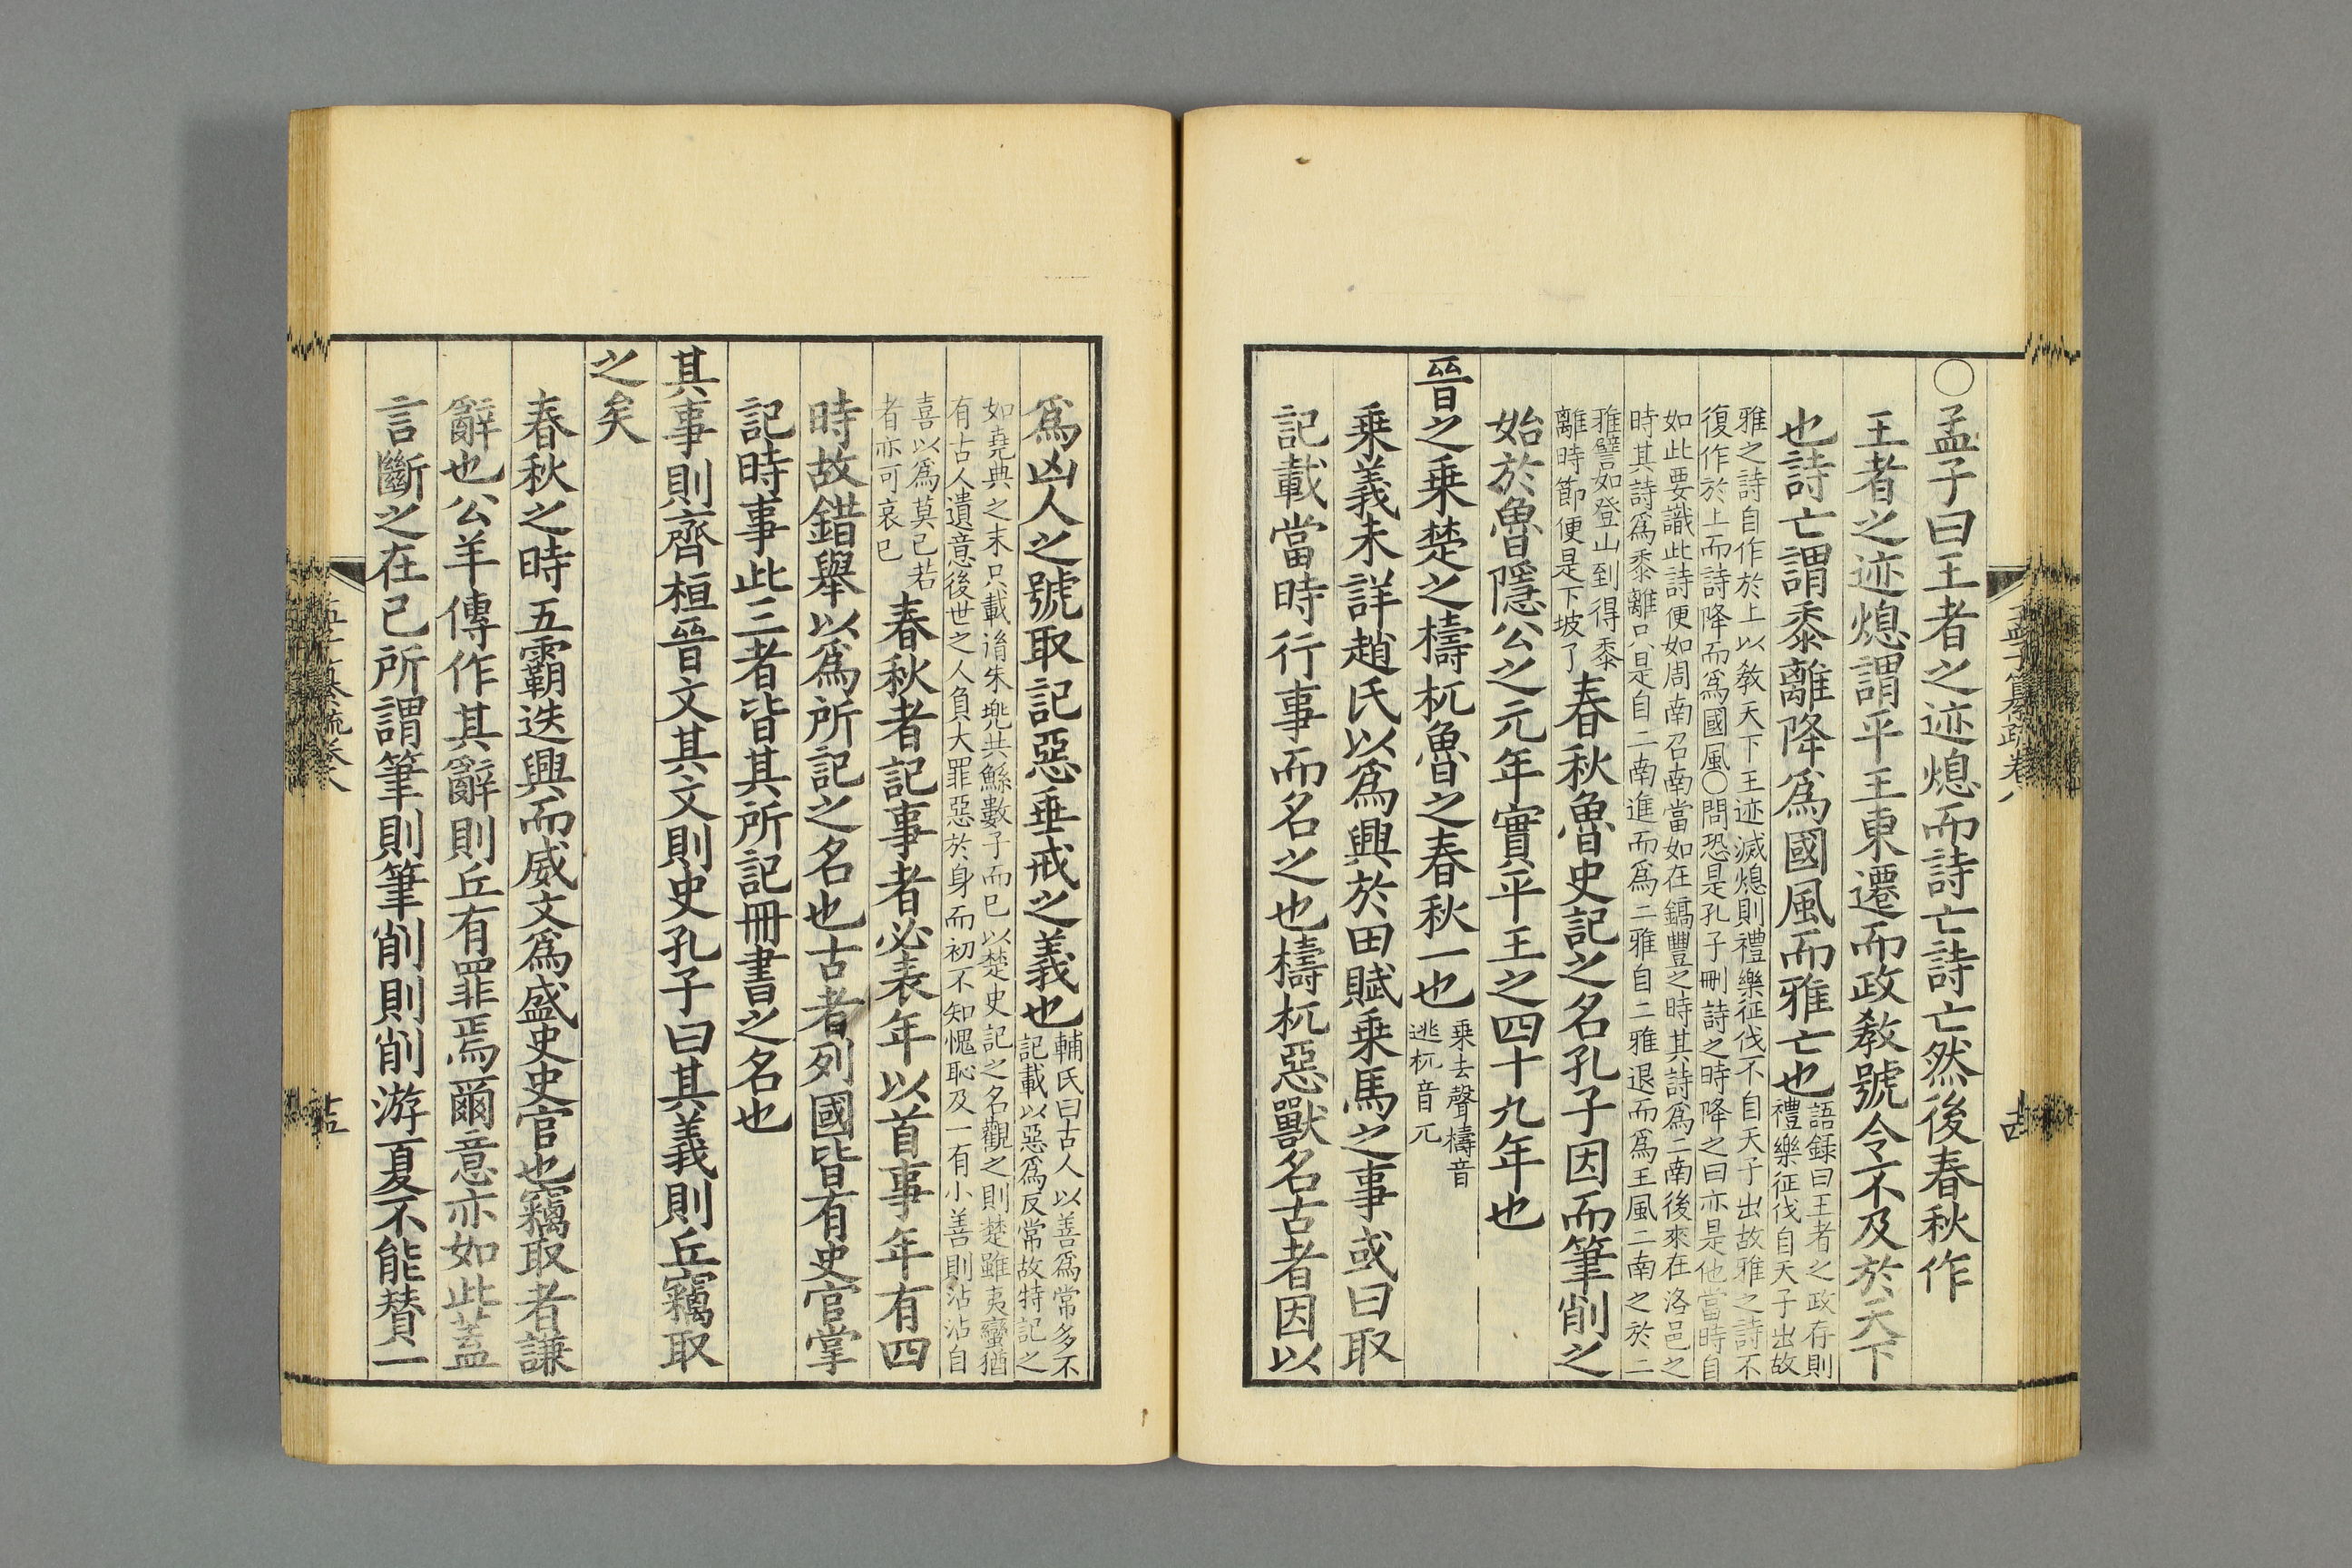 〇孟子曰王者之迹熄而詩亡詩亡然後春秋作
王者之迹熄謂平王東遷而政教號令不及於天下
也詩亡謂黍離降爲國風而雅亡也
語録曰王者之政存則
禮樂征伐自天子出故
雅之詩自作於上以敎天下王迹滅熄則禮樂征伐不自天子出故雅之詩不
復作於上而詩降而爲國風〇問恐是孔子刪詩之時降之曰亦是他當時自
如此要識此詩便如周南召南當如在鎬豐之時其詩爲二南後來在洛邑之
時其詩爲黍離只是自二南進而爲二雅自二雅退而爲王風二南之於二
雅譬如登山到得黍
離時節便是下坡了
春秋魯史記之名孔子因而筆削之
始於魯隱公之元年實平王之四十九年也
晉之乗楚之檮杌魯之春秋一也
乗去聲檮音
逃杌音兀
乗義未詳趙氏以爲興於田賦乗馬之事或曰取
記載當時行事而名之也檮杌惡獸名古者因以
孟子纂疏卷八
爲凶人之號取記惡垂戒之義也
輔氏曰古人以善爲常多不
記載以惡爲反常故特記之
如堯典之末只載洕朱兠共鯀數子而已以楚史記之名觀之則楚雖夷蠻猶
有古人遺意後世之人負大罪惡於身而初不知愧恥及一有小善則沾沾自
喜以爲莫己若
者亦可哀已
春秋者記事者必表年以首事年有四
時故錯舉以爲所記之名也古者列國皆有史官掌
記時事此三者皆其所記冊書之名也
其事則齊桓晉文其文則史孔子曰其義則丘竊取
之矣
春秋之時五霸迭興而威文爲盛史史官也竊取者謙
辭也公羊傳作其辭則丘有罪焉爾意亦如此蓋
言斷之在己所謂筆則筆削則削游夏不能賛一